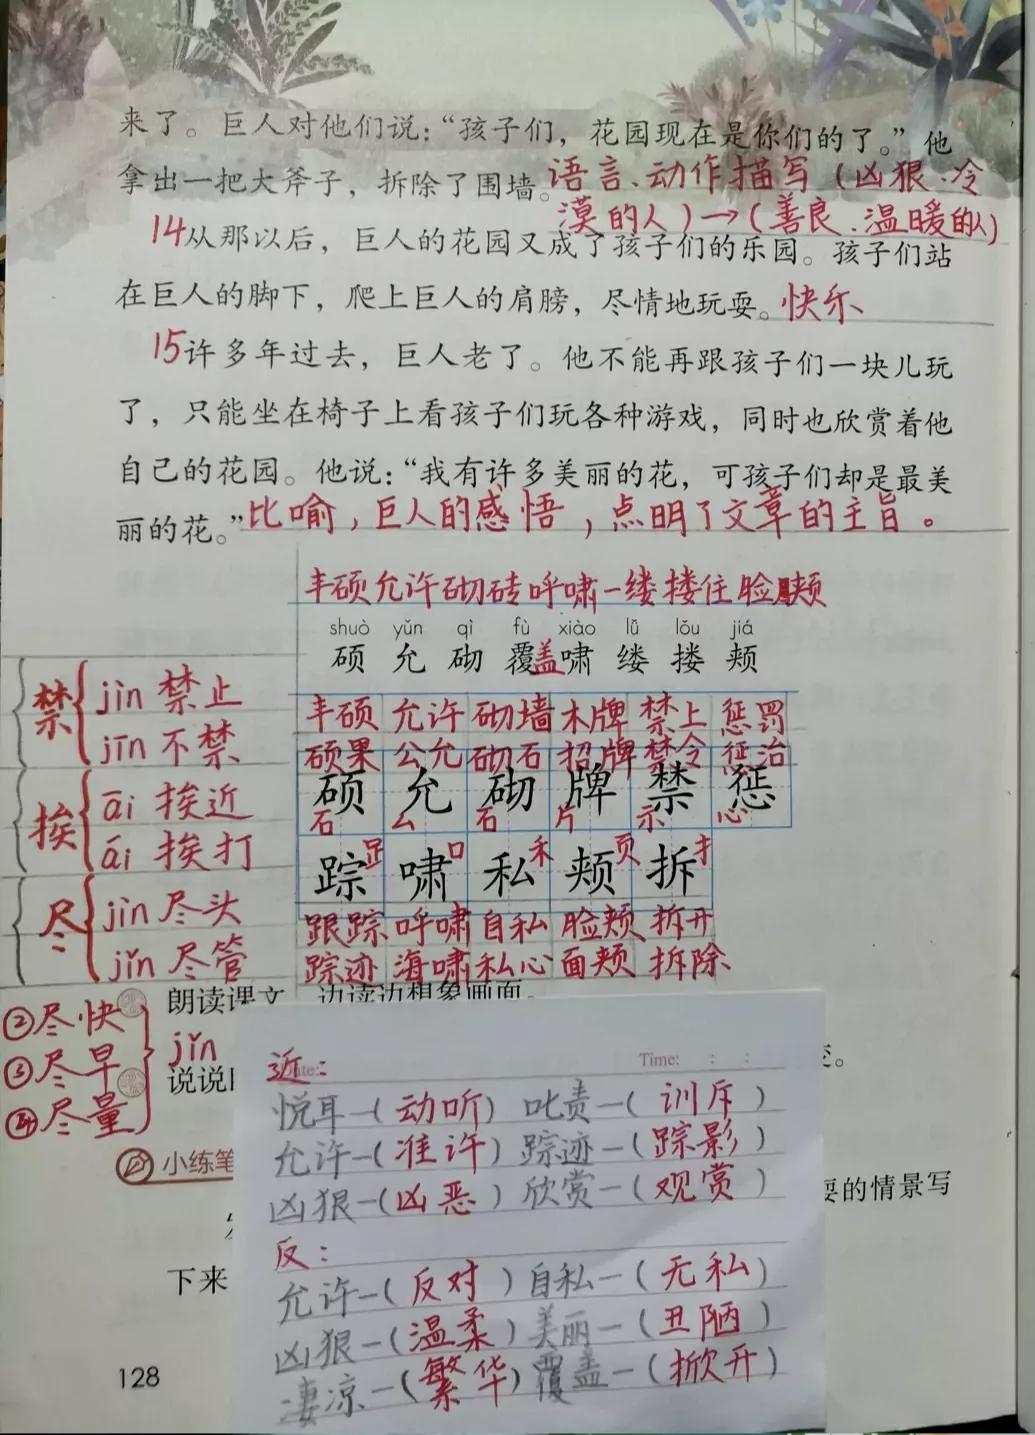 来了。巨人对他们说：“孩子们，花园现在是你们的了。”他
拿出一把大斧子，拆除了围墙。语言、动作描写（凶狠、冷
漠的人）→（善良、温暖的人）
14从那以后，巨人的花园又成了孩子们的乐园。孩子们站
在巨人的脚下，爬上巨人的肩膀，尽情地玩耍。快乐
15许多年过去，巨人老了。他不能再跟孩子们一块儿玩
了，只能坐在椅子上看孩子们玩各种游戏，同时也欣赏着他
自己的花园。他说：“我有许多美丽的花，可孩子们却是最美
丽的花。”比喻，巨人的感悟，点明了文章的主旨。
丰硕 允许 砌砖 呼啸 一缕 搂住 脸颊
shuò yǔn qì fù xiào lǚ lǒu jiá
硕 允 砌 覆盖 啸 缕 搂 颊
禁 jìn 禁止
jīn 不禁
挨 āi 挨近
āi 挨打
尽 jìn 尽头
jǐn 尽管
②尽快
③尽早 jǐn
④尽量
丰硕 允许 砌墙 木牌 禁止 惩罚
硕果 公允 砌石 招牌 禁令 惩治
硕 允 砌 牌 禁 惩
石 厶 石 片 示 心
踪 啸 私 颊 拆
𧾷 口 禾 页 扌
跟踪 呼啸 自私 脸颊 拆开
踪迹 海啸 私心 面颊 拆除
朗读课文，边读边想象画面。
说说
小练笔
耍的情景写
下来
近： Time: : :
悦耳—（动听） 叱责—（训斥）
允许—（准许） 踪迹—（踪影）
凶狠—（凶恶） 欣赏—（观赏）
反：
允许—（反对） 自私—（无私）
凶狠—（温柔） 美丽—（丑陋）
凄凉—（繁华） 覆盖—（掀开）
128